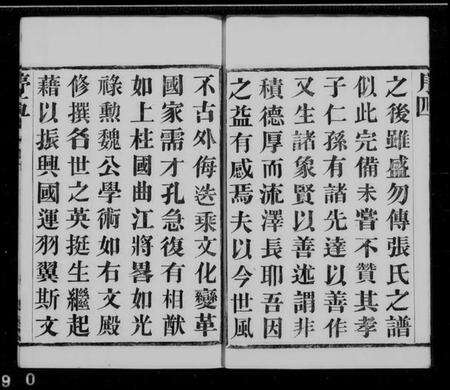 序四
之後雖盛勿傳張氏之譜
似此完備未嘗不贊其孝
子仁孫有諸先達以善作
又生諸象賢以善述謂非
積德厚而流澤長耶吾因
之益有感焉夫以今世風
不古外侮迭乘文化變革
國家需才孔急復有相猷
如上柱國曲江將畧如光
祿勲魏公學術如右文殿
修撰名世之英挺生繼起
藉以振興國運羽翼斯文
序
9 0